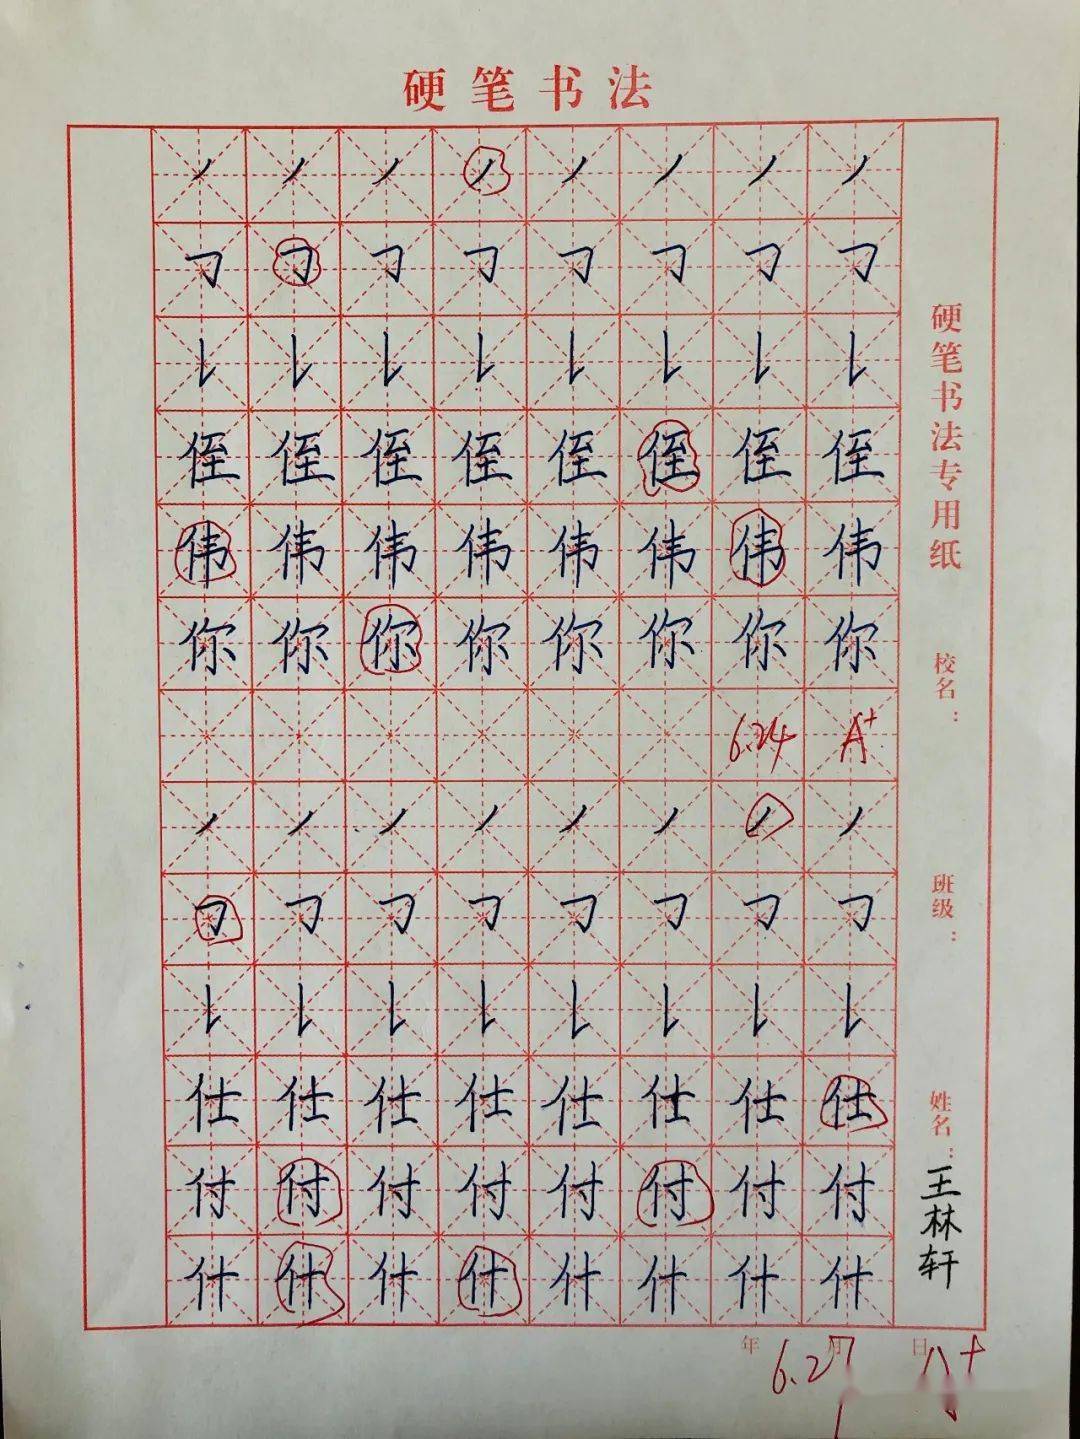 硬笔书法
侄侄侄侄侄侄侄侄
伟伟伟伟伟伟伟伟
你你你你你你你你
6.24 A+
仕仕仕仕仕仕仕仕
付付付付付付付付
什什什什什什什什
硬笔书法专用纸
校名：
班级：
姓名：王林轩
年 月 日
6.27